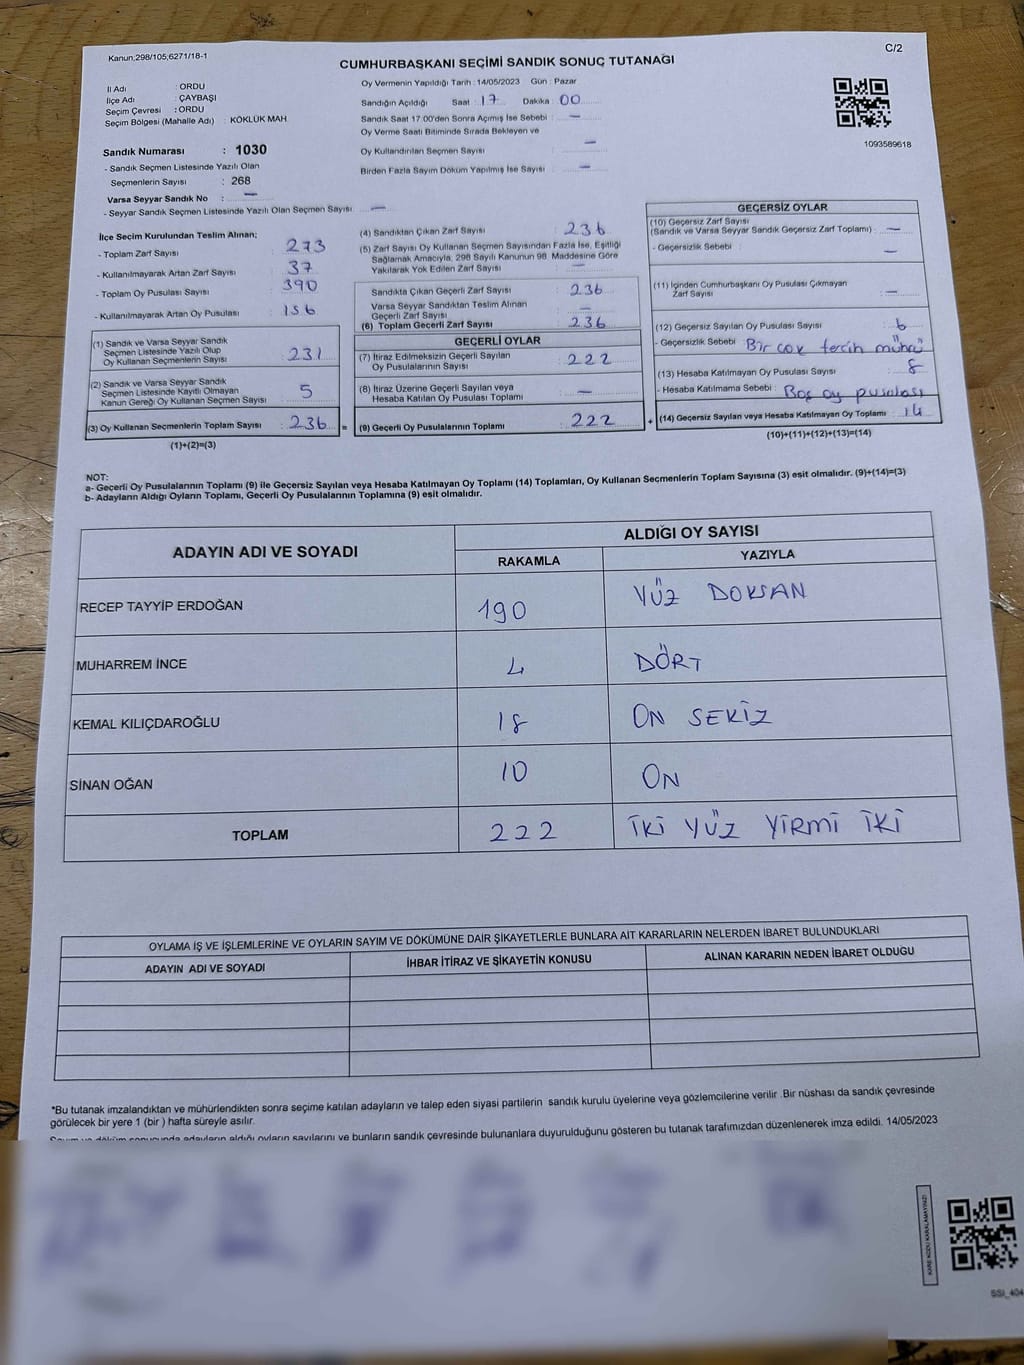 Kanun;298/105;6271/18-1
C/2
CUMHURBAŞKANI SEÇİMİ SANDIK SONUÇ TUTANAĞI
İl Adı : ORDU
İlçe Adı : ÇAYBAŞI
Seçim Çevresi : ORDU
Seçim Bölgesi (Mahalle Adı) : KÖKLÜK MAH.
Sandık Numarası : 1030
- Sandık Seçmen Listesinde Yazılı Olan
Seçmenlerin Sayısı : 268
Varsa Seyyar Sandık No : —
- Seyyar Sandık Seçmen Listesinde Yazılı Olan Seçmen Sayısı : —
Oy Vermenin Yapıldığı Tarih : 14/05/2023 Gün : Pazar
Sandığın Açıldığı Saat : 17 Dakika : 00
Sandık Saat 17.00'den Sonra Açımış İse Sebebi : —
Oy Verme Saati Bitiminde Sırada Bekleyen ve
Oy Kullandırılan Seçmen Sayısı : —
Birden Fazla Sayım Döküm Yapılmış İse Sayısı : —
1093589618
İlçe Secim Kurulundan Teslim Alınan;
- Toplam Zarf Sayısı : 273
- Kullanılmayarak Artan Zarf Sayısı : 37
- Toplam Oy Pusulası Sayısı : 390
- Kullanılmayarak Artan Oy Pusulası : 156
(1) Sandık ve Varsa Seyyar Sandık
Seçmen Listesinde Yazılı Olup
Oy Kullanan Seçmenlerin Sayısı : 231
(2) Sandık ve Varsa Seyyar Sandık
Seçmen Listesinde Kayıtlı Olmayan
Kanun Gereği Oy Kullanan Seçmen Sayısı : 5
(3) Oy Kullanan Seçmenlerin Toplam Sayısı : 236
(1)+(2)=(3)
(4) Sandıktan Çıkan Zarf Sayısı : 236
(5) Zarf Sayısı Oy Kullanan Seçmen Sayısından Fazla İse, Eşitliği
Sağlamak Amacıyla, 298 Sayılı Kanunun 98. Maddesine Göre
Yakılarak Yok Edilen Zarf Sayısı : —
Sandıkta Çıkan Geçerli Zarf Sayısı : 236
Varsa Seyyar Sandıktan Teslim Alınan
Geçerli Zarf Sayısı : —
(6) Toplam Geçerli Zarf Sayısı : 236
GEÇERLİ OYLAR
(7) İtiraz Edilmeksizin Geçerli Sayılan
Oy Pusulalarının Sayısı : 222
(8) İtiraz Üzerine Geçerli Sayılan veya
Hesaba Katılan Oy Pusulası Toplamı : —
= (9) Geçerli Oy Pusulalarının Toplamı : 222
GEÇERSİZ OYLAR
(10) Geçersiz Zarf Sayısı
(Sandık ve Varsa Seyyar Sandık Geçersiz Zarf Toplamı) : —
- Geçersizlik Sebebi : —
(11) İçinden Cumhurbaşkanı Oy Pusulası Çıkmayan
Zarf Sayısı : —
(12) Geçersiz Sayılan Oy Pusulası Sayısı : 6
- Geçersizlik Sebebi : Bir çok tercih mührü
(13) Hesaba Katılmayan Oy Pusulası Sayısı : 8
- Hesaba Katılmama Sebebi : Boş oy pusulası
+ (14) Geçersiz Sayılan veya Hesaba Katılmayan Oy Toplamı : 14
(10)+(11)+(12)+(13)=(14)
NOT:
a- Geçerli Oy Pusulalarının Toplamı (9) ile Geçersiz Sayılan veya Hesaba Katılmayan Oy Toplamı (14) Toplamları, Oy Kullanan Secmenlerin Toplam Sayısına (3) eşit olmalıdır. (9)+(14)=(3)
b- Adayların Aldığı Oyların Toplamı, Geçerli Oy Pusulalarının Toplamına (9) eşit olmalıdır.
ADAYIN ADI VE SOYADI
ALDIĞI OY SAYISI
RAKAMLA YAZIYLA
RECEP TAYYİP ERDOĞAN 190 YÜZ DOKSAN
MUHARREM İNCE 4 DÖRT
KEMAL KILIÇDAROĞLU 18 ON SEKİZ
SİNAN OĞAN 10 ON
TOPLAM 222 İKİ YÜZ YİRMİ İKİ
OYLAMA İŞ VE İŞLEMLERİNE VE OYLARIN SAYIM VE DÖKÜMÜNE DAİR ŞİKAYETLERLE BUNLARA AİT KARARLARIN NELERDEN İBARET BULUNDUKLARI
ADAYIN ADI VE SOYADI İHBAR İTİRAZ VE ŞİKAYETİN KONUSU ALINAN KARARIN NEDEN İBARET OLDUĞU
*Bu tutanak imzalandıktan ve mühürlendikten sonra seçime katılan adayların ve talep eden siyasi partilerin sandık kurulu üyelerine veya gözlemcilerine verilir .Bir nüshası da sandık çevresinde
görülecek bir yere 1 (bir ) hafta süreyle asılır.
Sayım ve döküm sonucunda adayların aldığı oyların sayılarını ve bunların sandık çevresinde bulunanlara duyurulduğunu gösteren bu tutanak tarafımızdan düzenlenerek imza edildi. 14/05/2023
KARE KODU KARALAMAYINIZ!
SSI_404